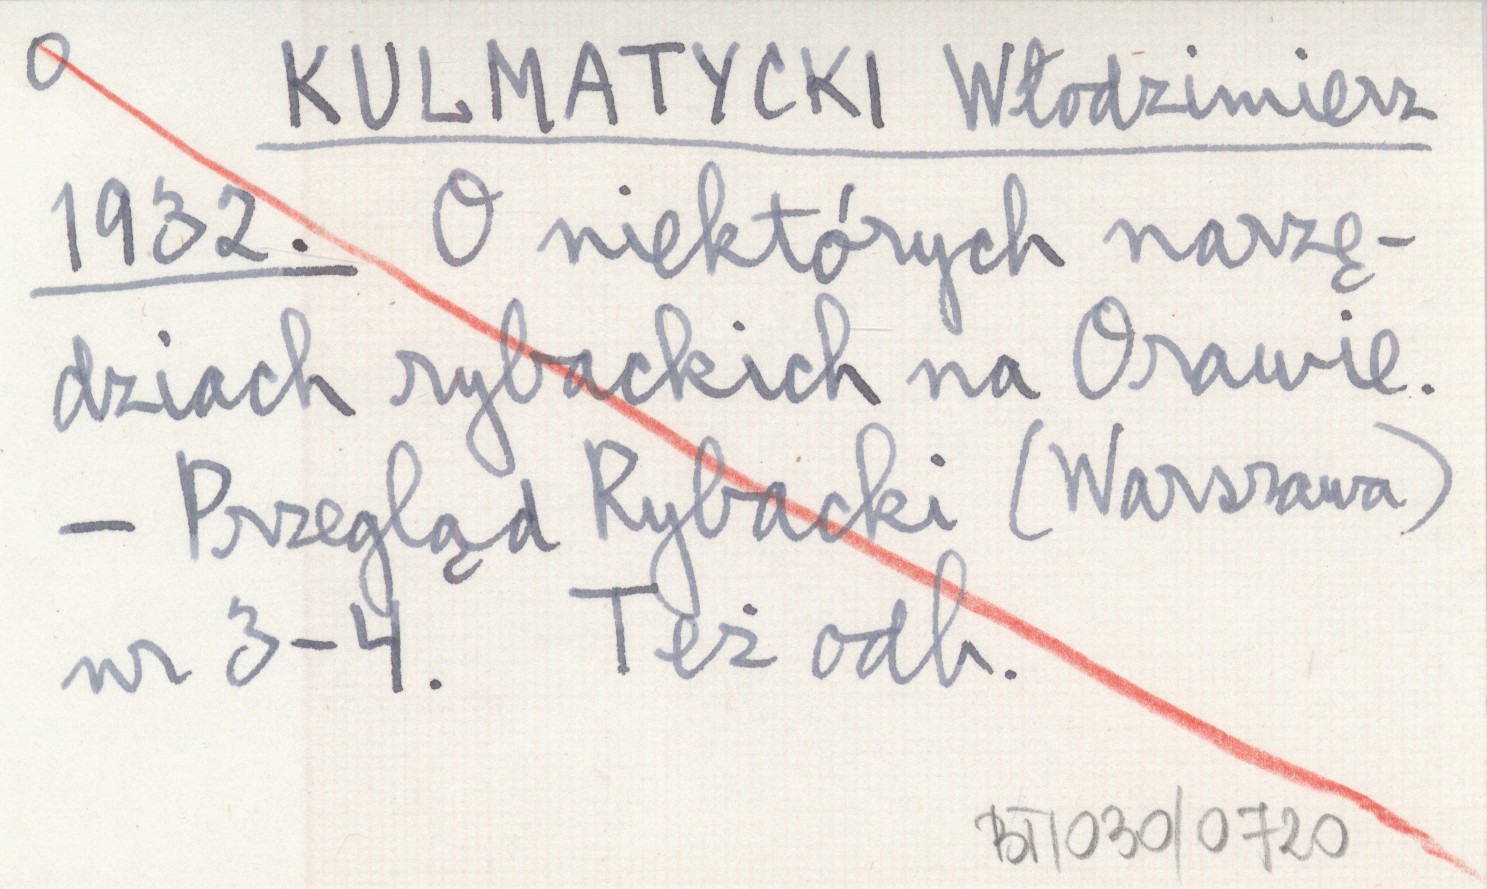 O KULMATYCKI Włodzimierz
1932. O niektórych narzę-
dziach rybackich na Orawie.
– Przegląd Rybacki (Warszawa)
nr 3–4. Też odb.
BT/030/0720